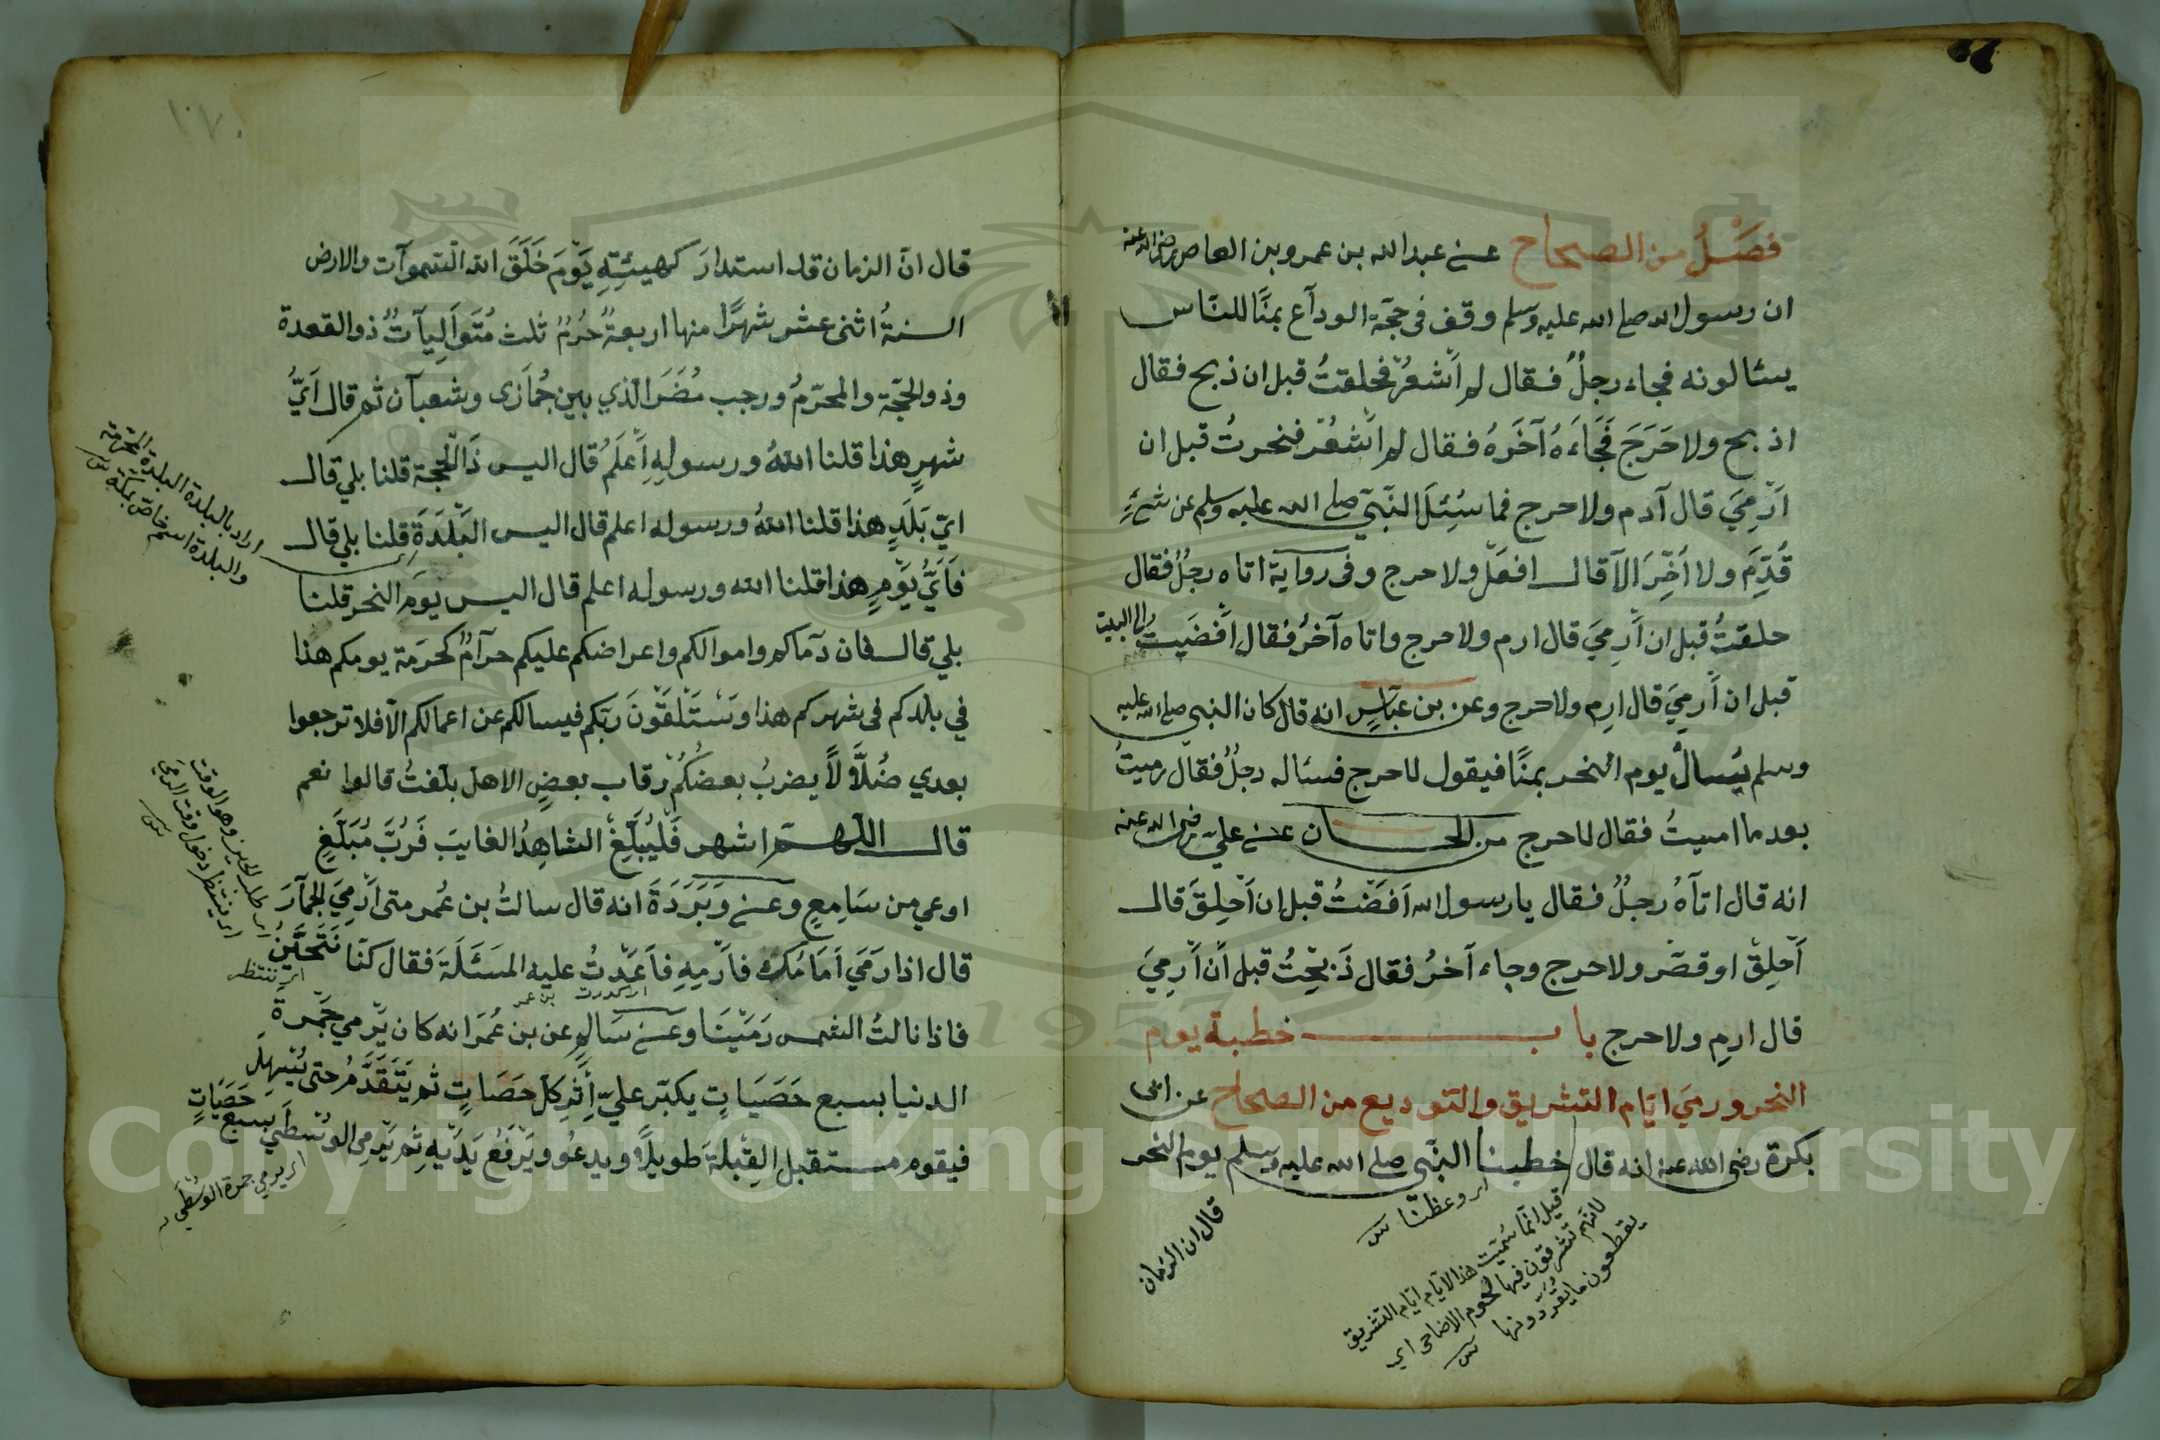 فَصْلٌ من الصحاح عن عبدالله بن عمرو بن العاص رضى الله عنه
ان رسول الله صلى الله عليه وسلم وقف فى حجّة الوداع بمنًا للنّاس
يسئالونه فجاء رجلٌ فقال لم اَشْعُرْ فحلقتُ قبل ان ذبح فقال
اذبح ولا حَرَجَ فَجَاءَهُ آخَرَهُ فقال لم اشعُرْ فنحرتُ قبل ان
اَرْمِيَ قال آدم ولا حرج فما سُئِلَ النّبيّ صلى الله عليه وسلم عن شئٍ
قُدِّمَ ولا اُخِّرَ الاّ قال افعَلْ ولا حرج وفى رواية اتاه رجلٌ فقال
حلقتُ قبل ان اَرمِيَ قال ارم ولا حرج واتاه آخرُ فقال اَفَضْيتُ الى البيت
قبل ان اَرميَ قال ارِم ولا حرج وعن بن عبّاسٍ انه قال كان النبى صلى الله عليه
وسلم يُسالُ يوم النحر بمنًا فيقول لا حرج فسئاله رجلٌ فقال رميتُ
بعد ما امسيتُ فقال لا حرج من الحسان عن عليّ رضى الله عنه
انه قال اتاهُ رجلٌ فقال يا رسول الله اَفَضْتُ قبل ان اَحْلِقَ قال
اَحْلِقْ او قصّر ولا حرج وجاء آخرُ فقال ذَبحْتُ قبل اَن اَرميَ
قال ارمِ ولا حرج باب خطبة يوم
النحر ورميَ ايّام التشريق والتوديع من الصحاح عن ابى
بكرة رضى الله عنه انه قال خطبنا النّبى صلى الله عليه وسلم يوم النحر
اى وعظنا
قيل انما سُمّيت هذا الايّام ايّام التشريق
لانهم تشرقون فيها لحوم الاضاحى اى
يقطعون ما يقدّدونها
قال ان الزمان
١٠٧
قال انّ الزمان قد استدارَ كهيئتِهِ يَوْمَ خَلَقَ الله السّمواَت والارض
السنةُ اثنى عشر شهرًا منها اربعةٌ حُرُمٌ ثلث مُتَوَالِيآتٌ ذو القعدة
وذو الحجّة والمحرّمُ ورجب مُضَرَ الّذي بين جُمَازى وشعبآن ثم قال اَيُّ
شهرٍ هذا قلنا اللهُ ورسولِهِ اَعلَمُ قال اليس ذَا الْحجّة قلنا بلي قال
ايّ بَلَدٍ هذا قلنا اللهُ ورسوله اعلم قال اليس البَلْدَةَ قلنا بلي قال
فَاَيُّ يَوْمٍ هذا قلنا الله ورسوله اعلم قال اليس يَومَ النحر قلنا
بلي قال فان دمآكم واموالكم واعراضكم عليكم حرآمٌ كحُرمَة يومكم هذا
في بلدكم فى شهركم هذا وسَتَلْقَوْنَ ربّكم فيسالكم عن اعمالكم الاّ فلا ترجعوا
بعدي ضُلاَّلاً يضربُ بعضُكُمْ رقاب بعضٍ الا هل بلّغتُ قالوا نعم
قال اللّهم اشهد فَلْيُبَلِّغْ الشاهِدُ الغايبَ فَرُبَّ مُبَلَّغٍ
اوعي من سَامِعٍ وعن وَبَرَدَةَ انه قال سالتُ بن عُمر متى اَرْمِيَ الجمآرَ
قال اذا رَمَي اَمَامُك فارْمِهِ فاَعَدْتُ عليه المَسَئَلَةَ فقال كنّا نَتَحَيَّنُ
اى كررت
بن عمر
اى ننتظر
فاذا نالتُ الشمس رَمَيْنَا وعن سَالمٍ عن بن عُمَرَ انه كان يَرْمي جَمْرةَ
الدنيا بسبع حَصَيَاتٍ يكبّر عليّ اِثرِ كلّ حَصَاتٍ ثم يَتَقَدَّمُ حتى يُسْهِلَ
فيقوم مستقبل القِبْلةَ طويلاً ويدعُو ويَرْفَعُ يَدَيْهِ ثم يَرْمى الوُسْطَي بسبع حَصَيَاتٍ
اى يرمي جمرة الوُسْطَي
اراد بالبلدة البلدة المحرمة
والبلدة اسم خاصّ بمكة
اى طلب الحين وهو الوقت
اى ينتظر دخول وقت الرمي
1957
Copyright © King Saud University